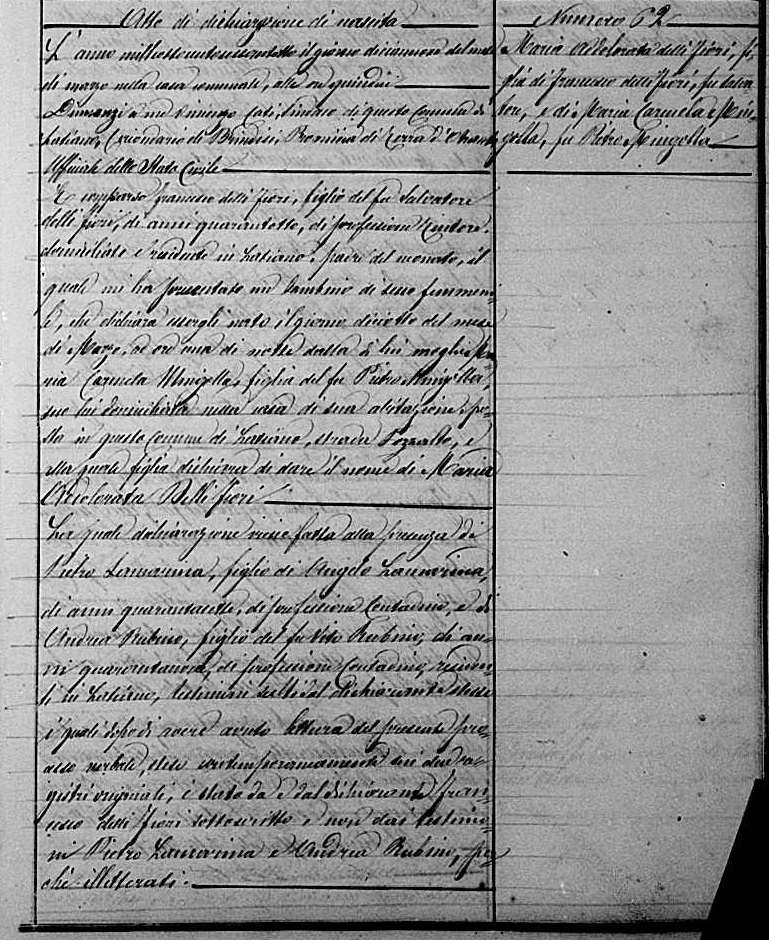 Atto di dichiarazione di nascita
L'anno milleottocentosessantotto il giorno diciannove del mese
di marzo nella casa comunale, alle ore quindici
Dinnanzi a me Domingo Cati, Sindaco di questo Comune di
Latiano, Circondario di Brindisi, Provincia di Terra d'Otranto
Uffiziale dello Stato Civile
È comparso Francesco delli Fiori, figlio del fu Salvatore
delli Fiori, di anni quarantotto, di professione Tintore,
domiciliato e residente in Latiano, padre del neonato, il
quale mi ha presentato un bambino di sesso femmeni-
le, che dichiara essergli nato il giorno diciotto del mese
di Marzo, ad ore una di notte dalla di lui moglie Ma-
ria Carmela Mingolla, figlia del fu Pietro Mingolla
seco lui domiciliata nella casa di sua abitazione, po-
sta in questo Comune di Latiano, strada, e
alla quale figlia dichiara di dare il nome di Maria
Addolorata Delli Fiori
La quale dichiarazione viene fatta alla presenza di
Pietro Lamarina, figlio di Angelo Lamarina,
di anni quarantasette, di professione Contadino, e di
Andrea Rubino, figlio del fu Vito Rubino, di an-
ni quarantanove, di professione Contadino, residen-
ti in Latiano, testimoni scelti dal dichiarante stesso
i quali dopo di avere avuto lettura del presente pro-
cesso verbale, steso contemporaneamente sui due re-
gistri originali, è stato da me e dal dichiarante Fran-
cesco delli Fiori sottoscritto e non dai testimo-
ni Pietro Lamarina e Andrea Rubino, per-
ché illetterati.
Numero 62
Maria Addolorata delli Fiori, fi-
glia di Francesco delli Fiori, fu Salva-
tore, e di Maria Carmela Min-
golla, fu Pietro Mingolla